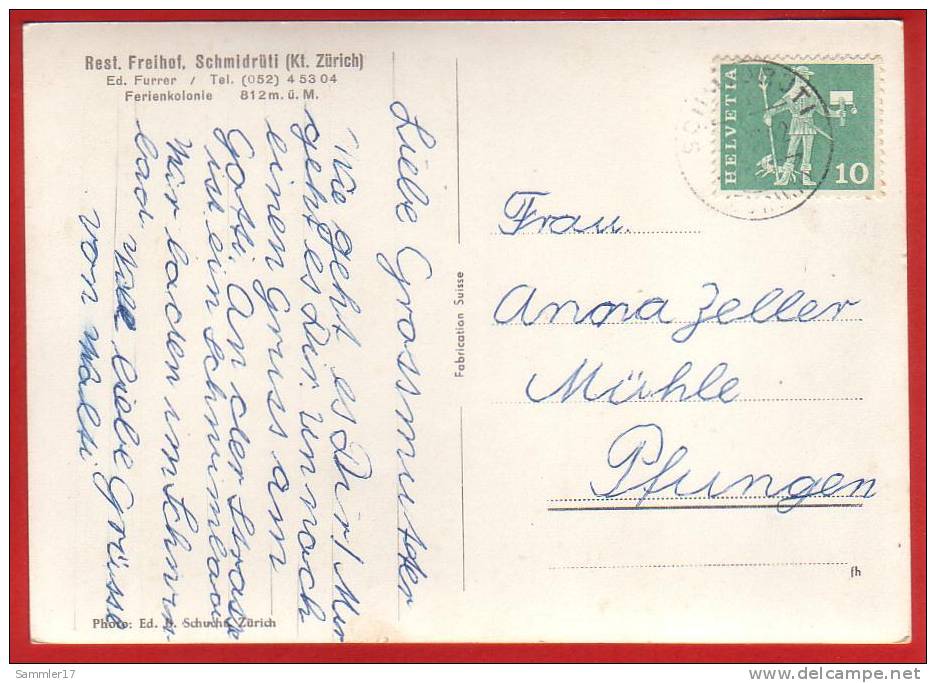 Rest. Freihof, Schmidrüti (Kt. Zürich)
Ed. Furrer / Tel. (052) 4 53 04
Ferienkolonie 812 m. ü. M.
Liebe Grossmutter
Wie geht es Dir! Mir
geht es Dir. Un noch
einen Gruss am
Gotti. An der Strasse
ist ein schwimbad
Mir baden im Schwim-
bad. Viele liebe Grüsse
von Walti.
Photo: Ed. Schucht, Zürich
Fabrication Suisse
HELVETIA
10
Frau.
Anna Zeller
Mühle
Pfungen
fh
Sammler17
www.delcampe.net